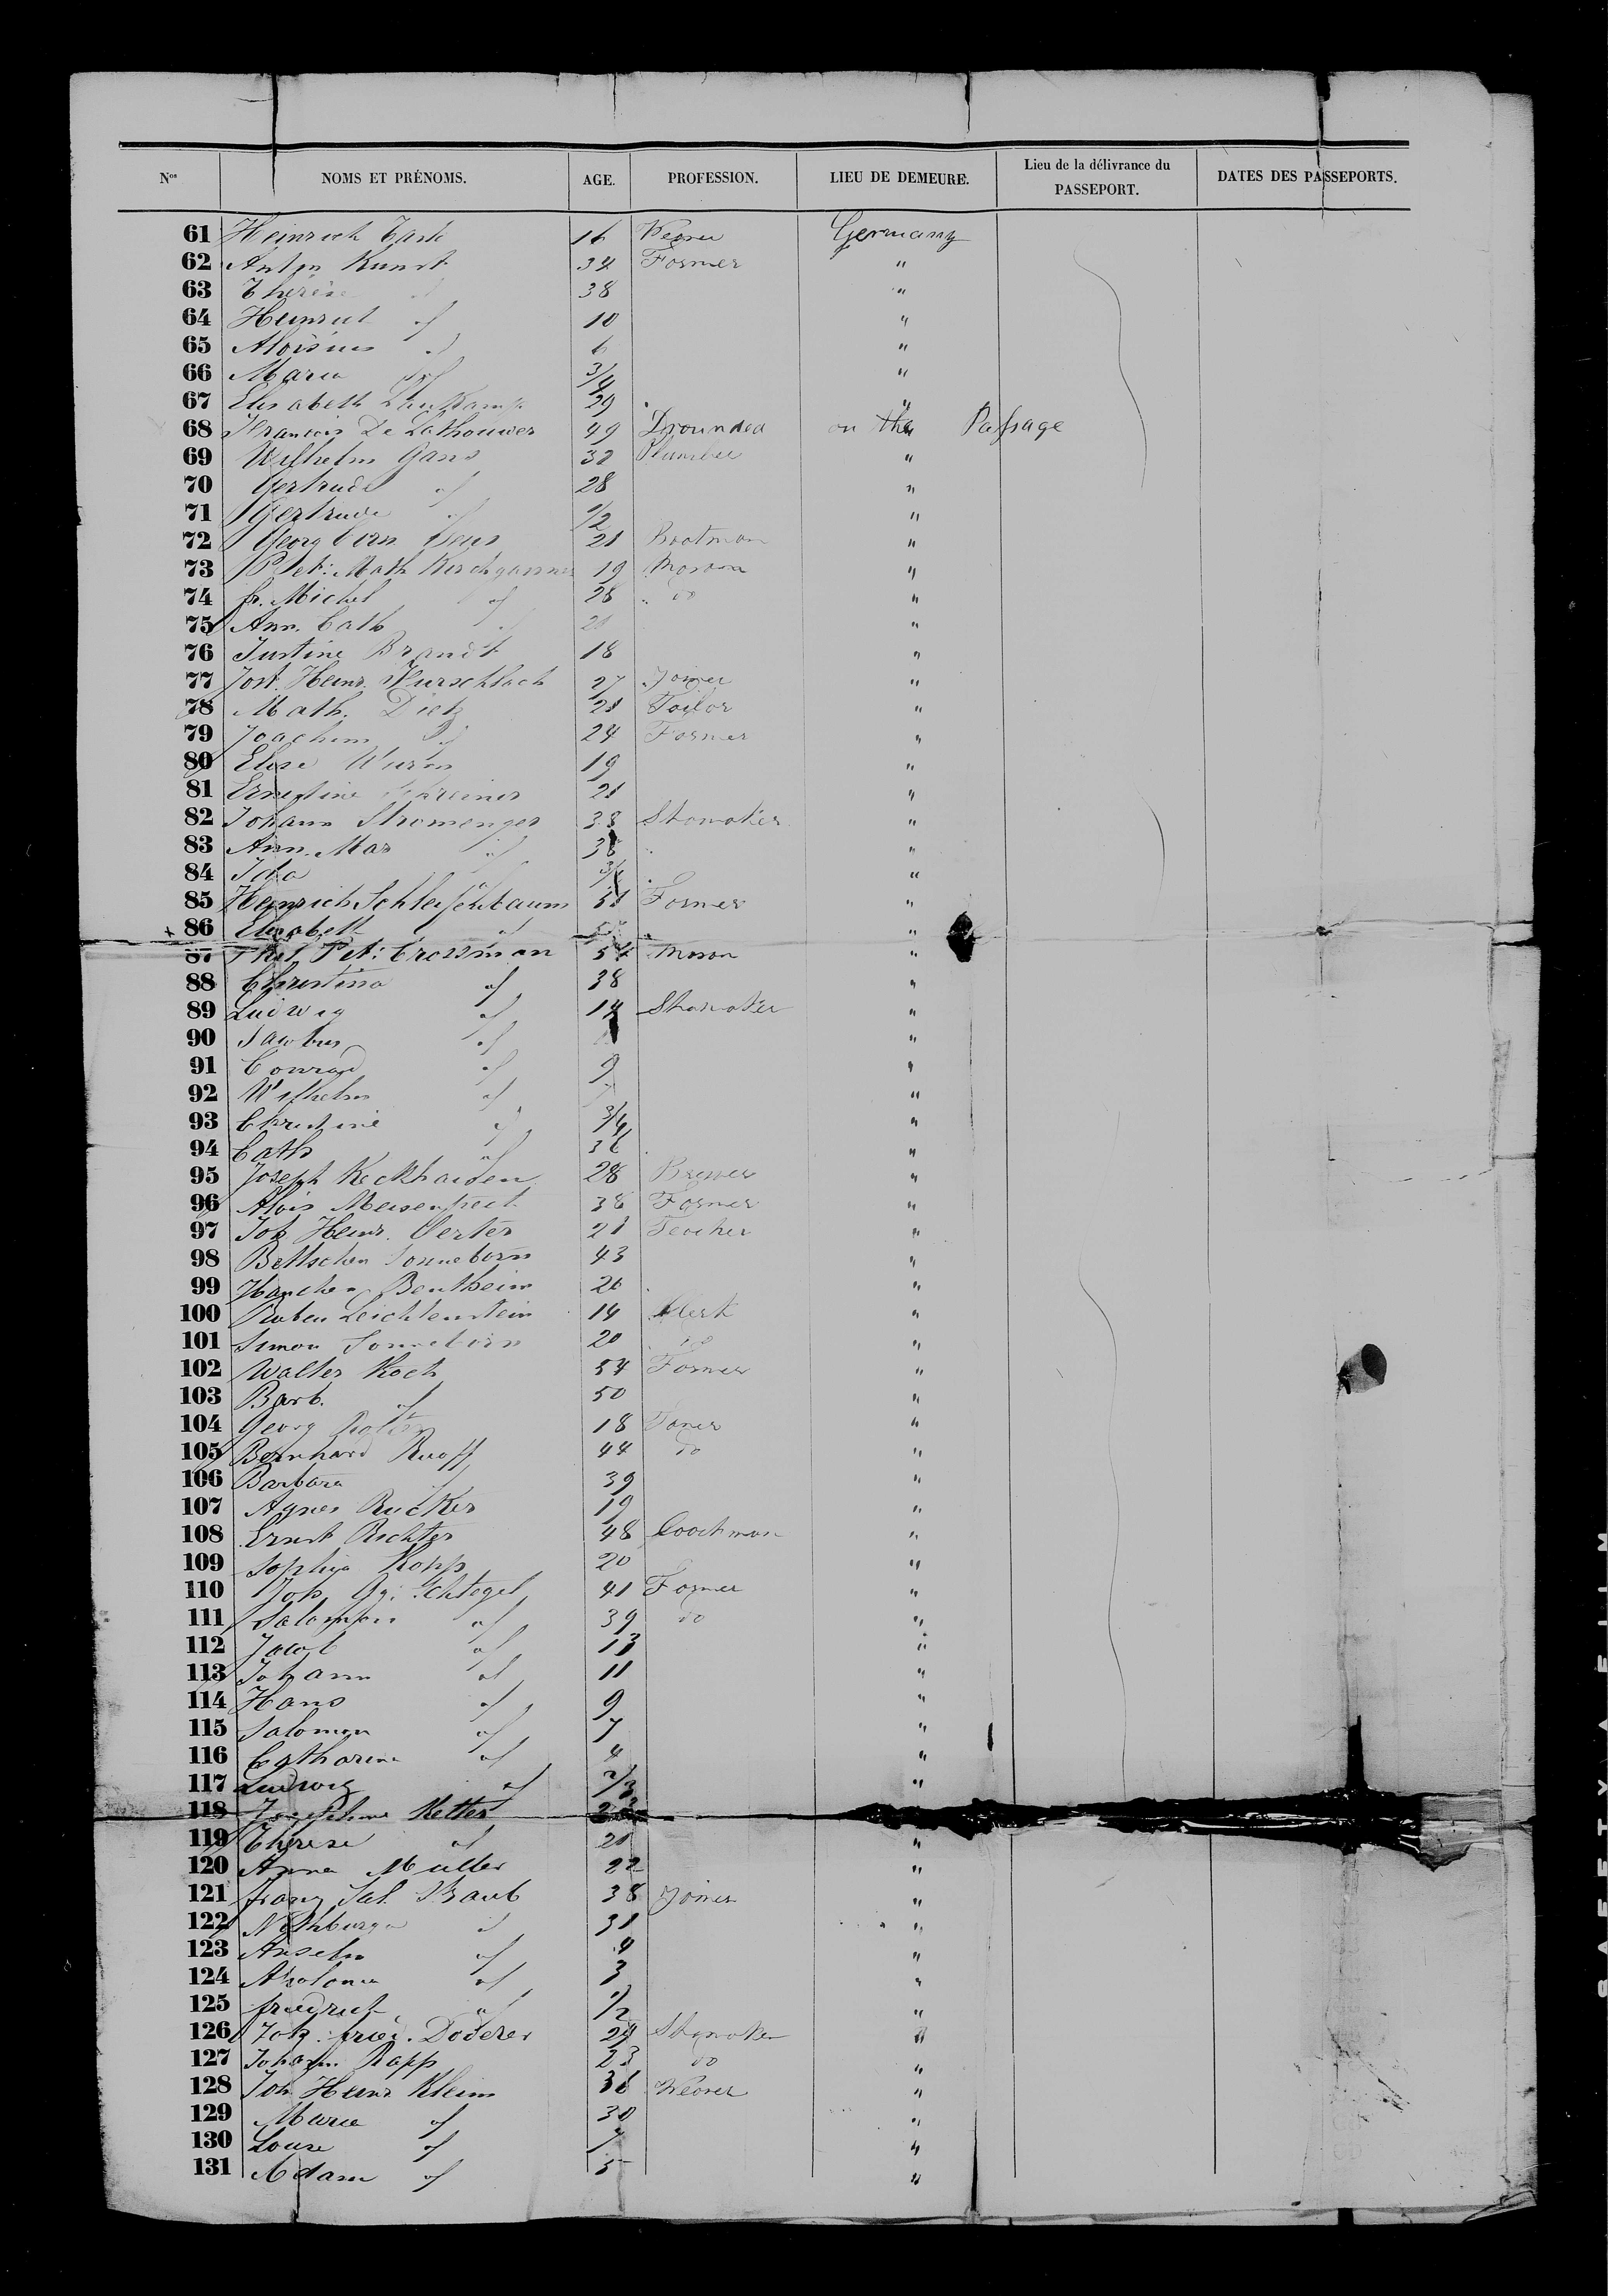 Nos NOMS ET PRÉNOMS. AGE. PROFESSION. LIEU DE DEMEURE. Lieu de la délivrance du PASSEPORT. DATES DES PASSEPORTS.
61 Heinrich 16 Weaver Germany
62 Anton Kunst 34 Farmer "
63 Therese 38 "
64 Heinrich " 10 "
65 Aloisius " 6 "
66 Maria " 3/4 "
67 Elisabeth 29 "
68 Francois De Lathouwer 49 Drounded on the Passage
69 Wilhelm Gans 30 Plumber "
70 Gertrude " 28 "
71 Gertrude " 1/2 "
72 Georg 21 Bootman "
73 Pet: Math Kirchgassner 19 Mason "
74 fr. Michel " 28 do "
75 Ann. Cath " 21 "
76 Justine Brandt 18 "
77 Jost. Heinr. 27 Joiner "
78 Math. Dietz 21 Tailor "
79 Joachim " 24 Farmer "
80 Elise Wurm 19 "
81 Ernestine Schreiner 21 "
82 Johann Stromenger 33 Shomaker "
83 Ann. Mar " 38 "
84 Ida " 3/4 "
85 Heinrich Schleifenbaum 51 Farmer "
86 Elisabeth " "
87 Phil Pet: Crossman 54 Mason "
88 Christina " 38 "
89 Ludwig " 14 Shomaker "
90 " "
91 Conrad " 9 "
92 Wilhelm " 7 "
93 Christine " 3/4 "
94 Cath " 36 "
95 Joseph Keckhaiden 28 Brewer "
96 Alois 38 Farmer "
97 Joh Heinr. Oerter 21 Teacher "
98 Bettschen Sonneborn 43 "
99 Hanchen Bentheim 26 "
100 Ruben Leichtenstein 14 Clerk "
101 Simon Sonneborn 20 do "
102 Walter Koch 54 Farmer "
103 Barb. " 50 "
104 Georg 18 "
105 Bernhard Ruoff 44 do "
106 Barbara " 39 "
107 Agnes Rucker 19 "
108 Ernst Richter 48 Coochman "
109 Sophia Kopp 20 "
110 Joh Gg: Schlegel 41 Farmer "
111 Salomon " 39 do "
112 Jacob " 13 "
113 Johann " 11 "
114 Hans " 9 "
115 Salomon " 7 "
116 Catharina " 4 "
117 Ludwig " "
118 Josephine Ketter
119 Therese " 21 "
120 Anna Muller 22 "
121 franz Sal. Straub 38 Joiner "
122 Nothburga " 31 "
123 Anselm " 4 "
124 Apolonia " 3 "
125 friedrich " 1/2 "
126 Joh: fried. Doderer 29 Shomaker "
127 Johann Rapp 23 do "
128 Joh Heinr Kleim 36 Weaver "
129 Marie " 30 "
130 Louise " 7 "
131 Adam " 5 "
SAFETY FILM